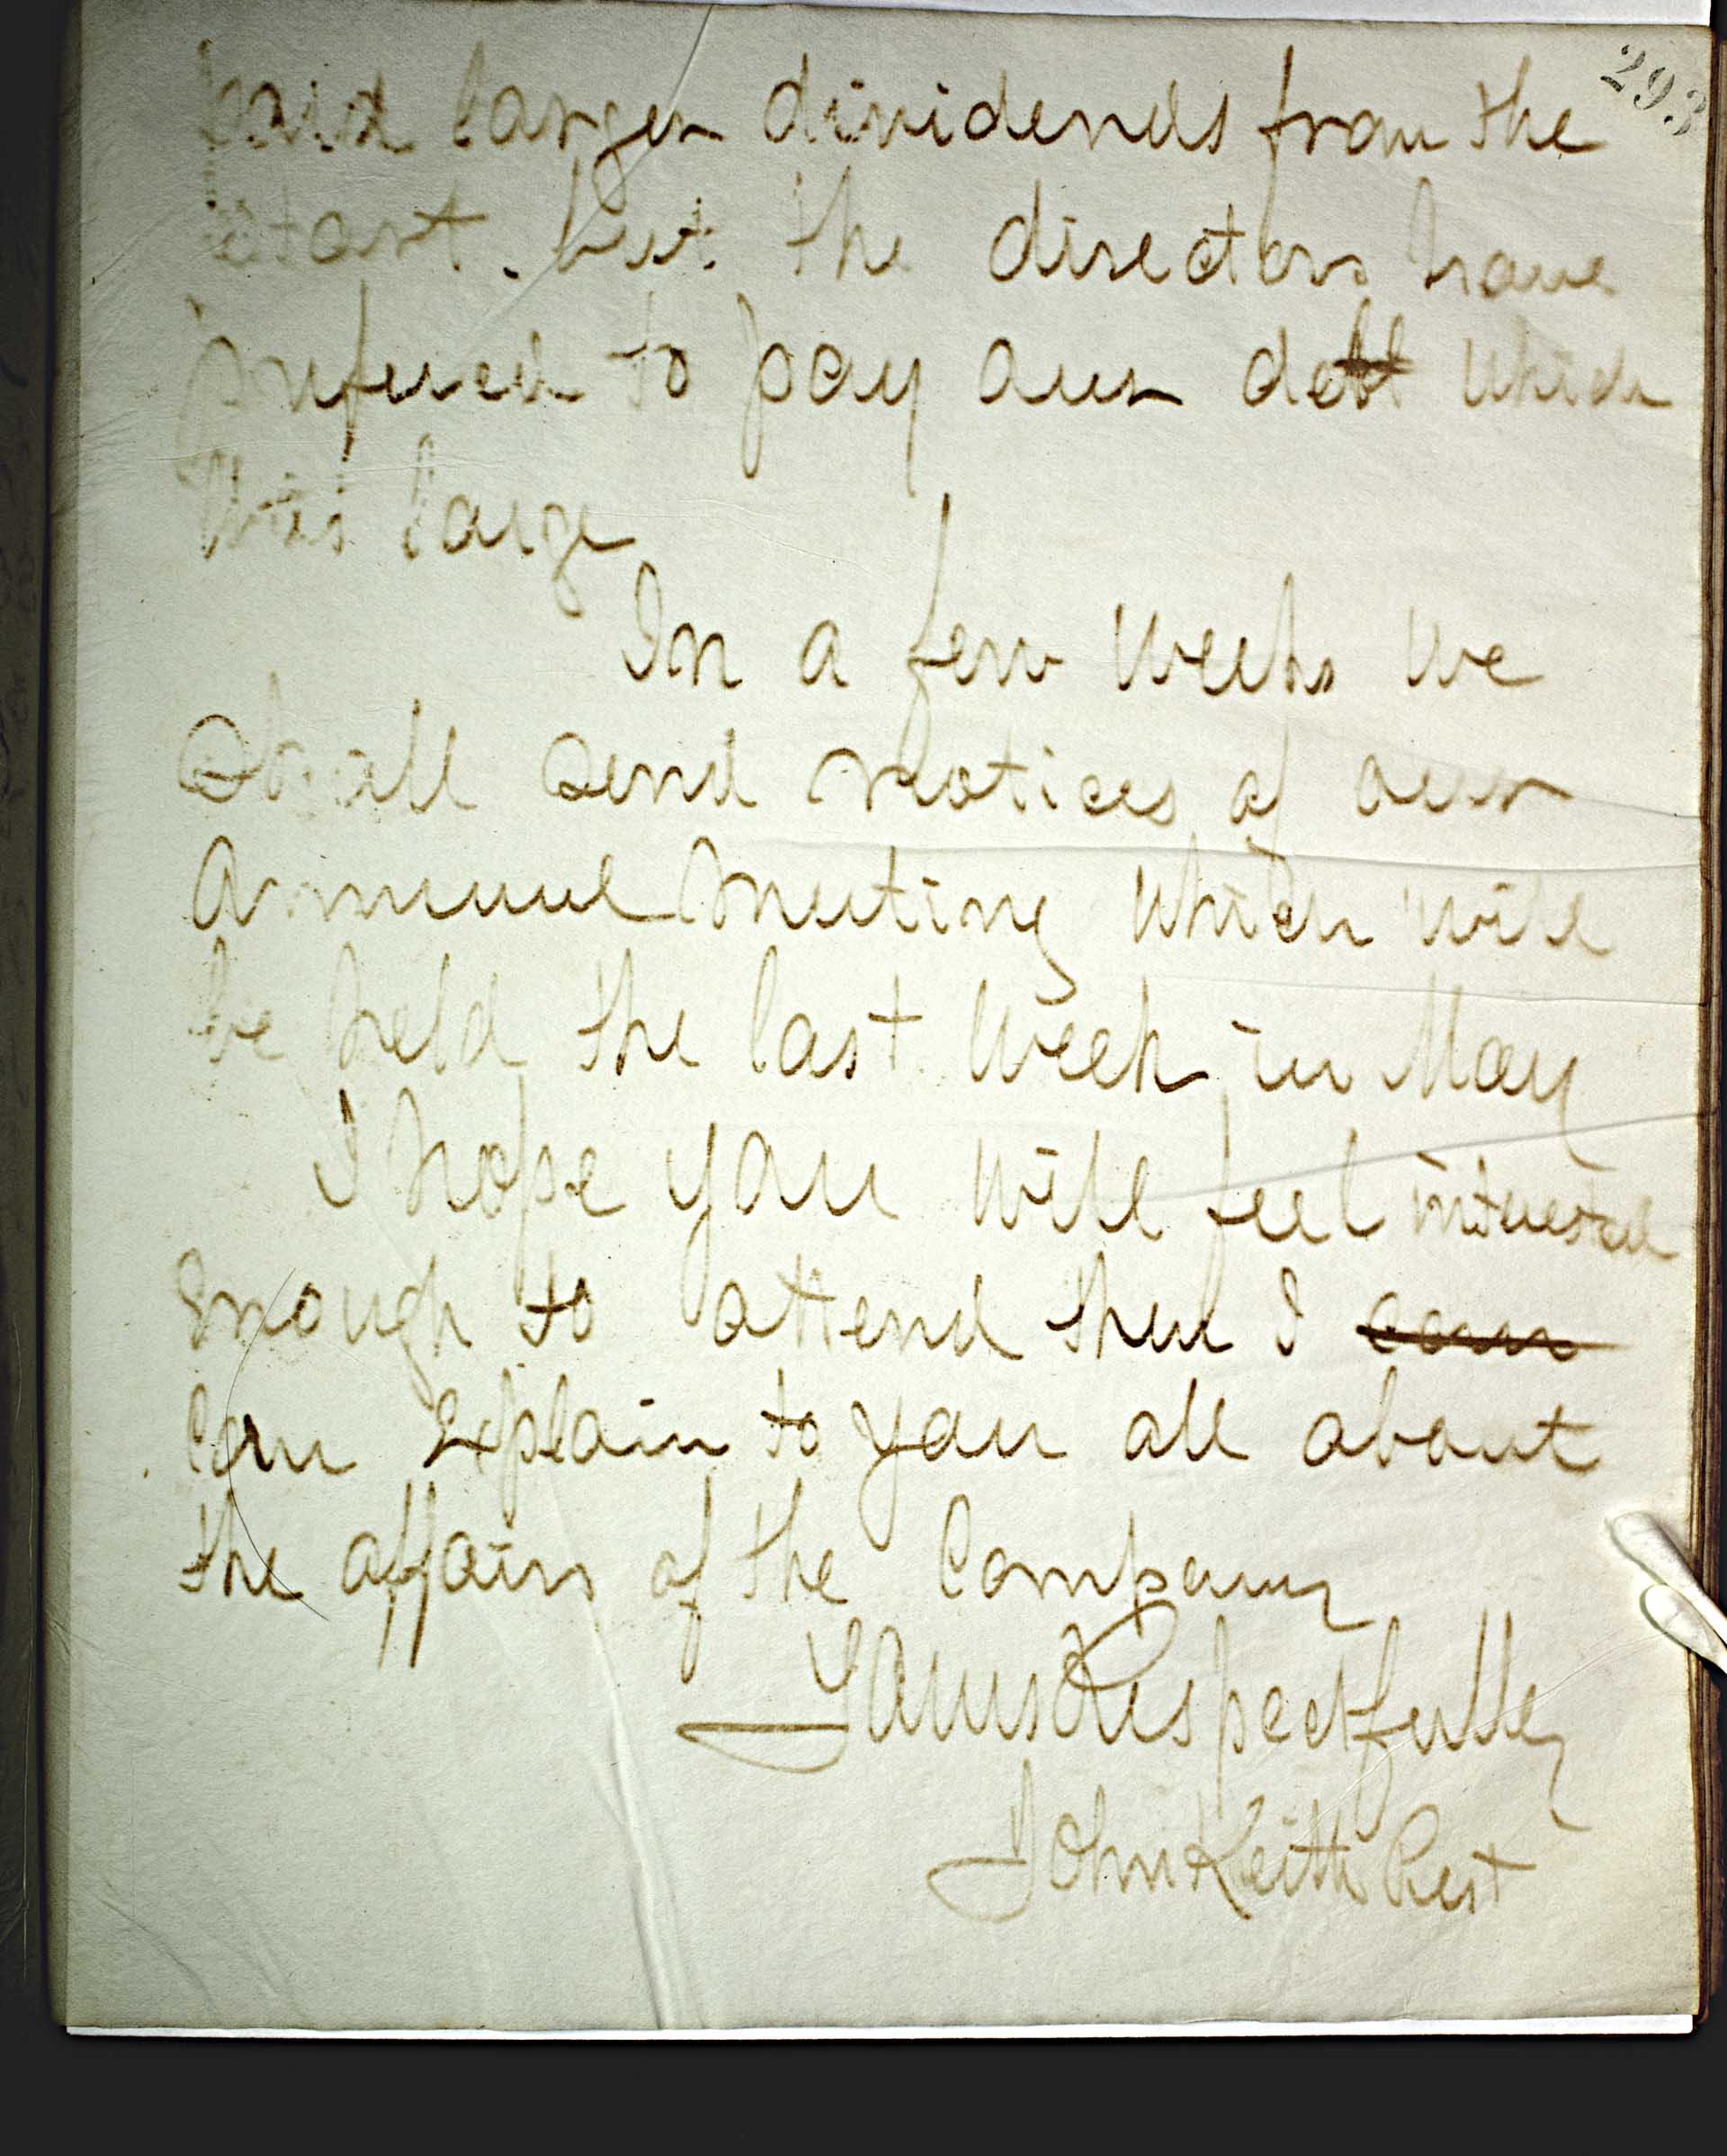 293
paid larger dividends from the
start. but the directors have
prefered to pay our debt which
was large
In a few weeks we
Shall send notices of our
Annual Meeting which will
be held the last week in May
I hope you will feel interested
Enough to attend then I can
Can Explain to you all about
the affairs of the Company
Yours Respectfully
John Keith Prest